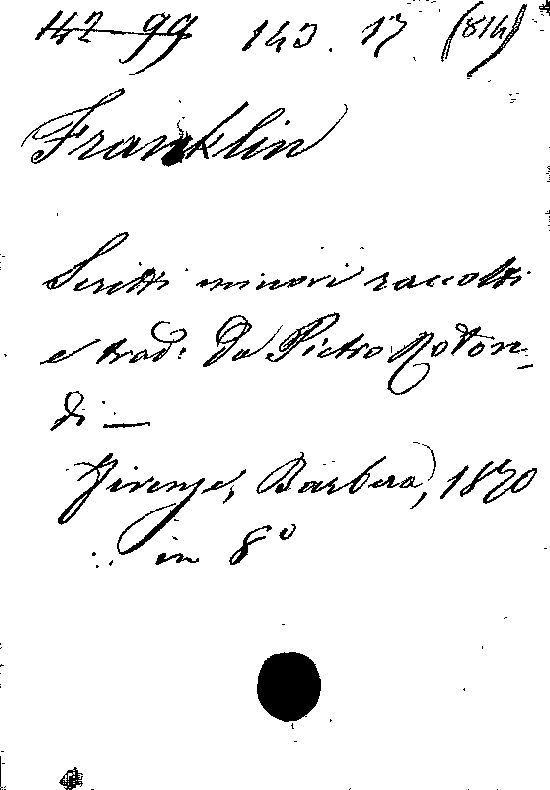 142-99 143. 17 (814)
Franklin
Scritti minori raccolti
e trad: da Pietro Roton-
di —
Firenze, Barbera, 1870
in 8°